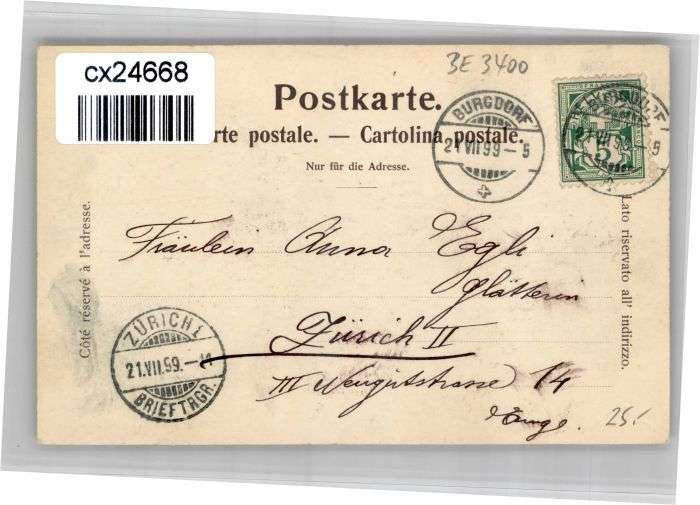 cx24668
BE 3400
Postkarte.
rte postale. — Cartolina postale.
Nur für die Adresse.
BURGDORF
21 VII 99 - 5
BURGDORF
21 VII 99 - 5
5
Côté réservé à l'adresse.
Lato riservato all' indirizzo.
Fräulein Anna Egli
Glätterin
Zürich II
III Neugutstrasse 14
Enge.
ZÜRICH 1
21.VII.99. - 11
BRIEFTRGR.
25.-